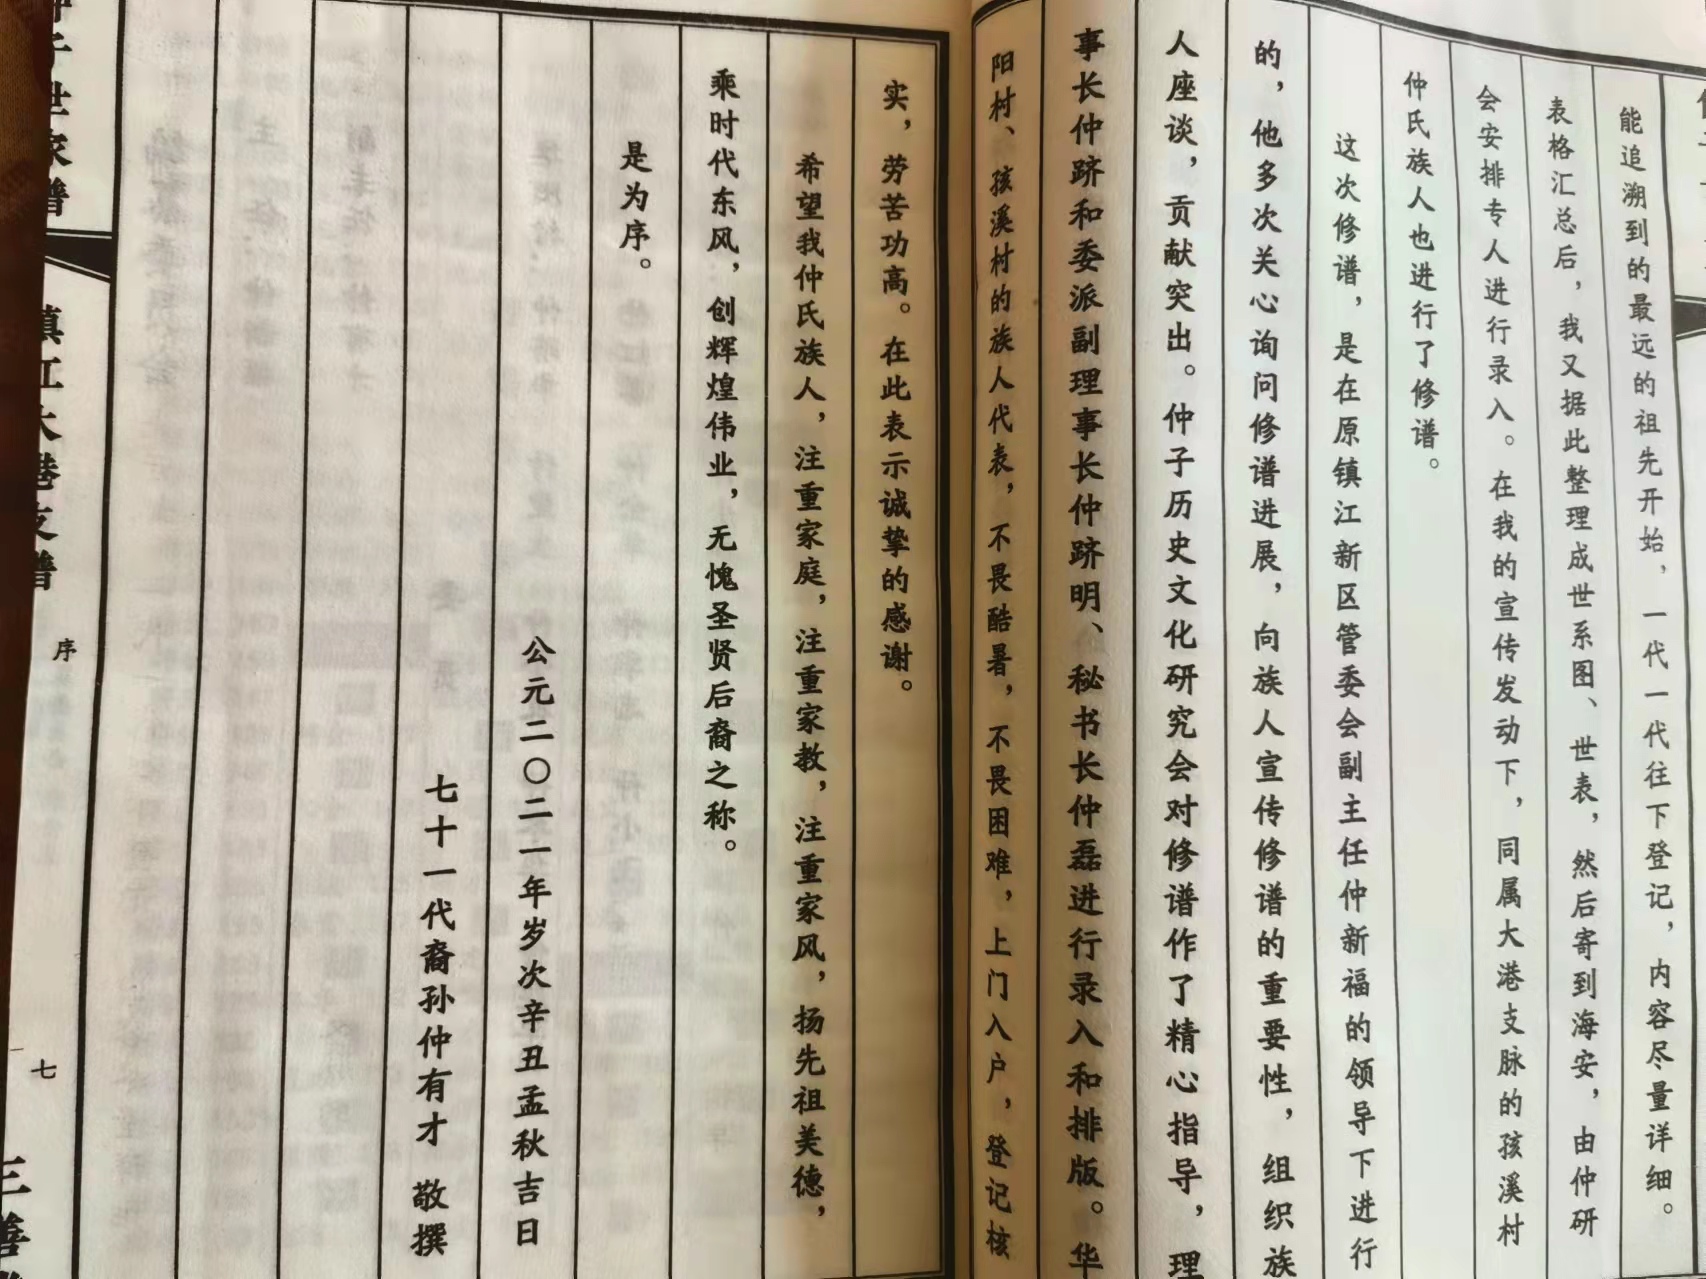 能追溯到的最远的祖先开始，一代一代往下登记，内容尽量详细。
表格汇总后，我又据此整理成世系图、世表，然后寄到海安，由仲研
会安排专人进行录入。在我的宣传发动下，同属大港支脉的孩溪村
仲氏族人也进行了修谱。
这次修谱，是在原镇江新区管委会副主任仲新福的领导下进行
的，他多次关心询问修谱进展，向族人宣传修谱的重要性，组织族
人座谈，贡献突出。仲子历史文化研究会对修谱作了精心指导，理
事长仲跻和委派副理事长仲跻明、秘书长仲磊进行录入和排版。华
阳村、孩溪村的族人代表，不畏酷暑，不畏困难，上门入户，登记核
实，劳苦功高。在此表示诚挚的感谢。
希望我仲氏族人，注重家庭，注重家教，注重家风，扬先祖美德，
乘时代东风，创辉煌伟业，无愧圣贤后裔之称。
是为序。
公元二〇二一年岁次辛丑孟秋吉日
七十一代裔孙仲有才 敬撰
子世家谱
镇江大港支谱
序
七
三善